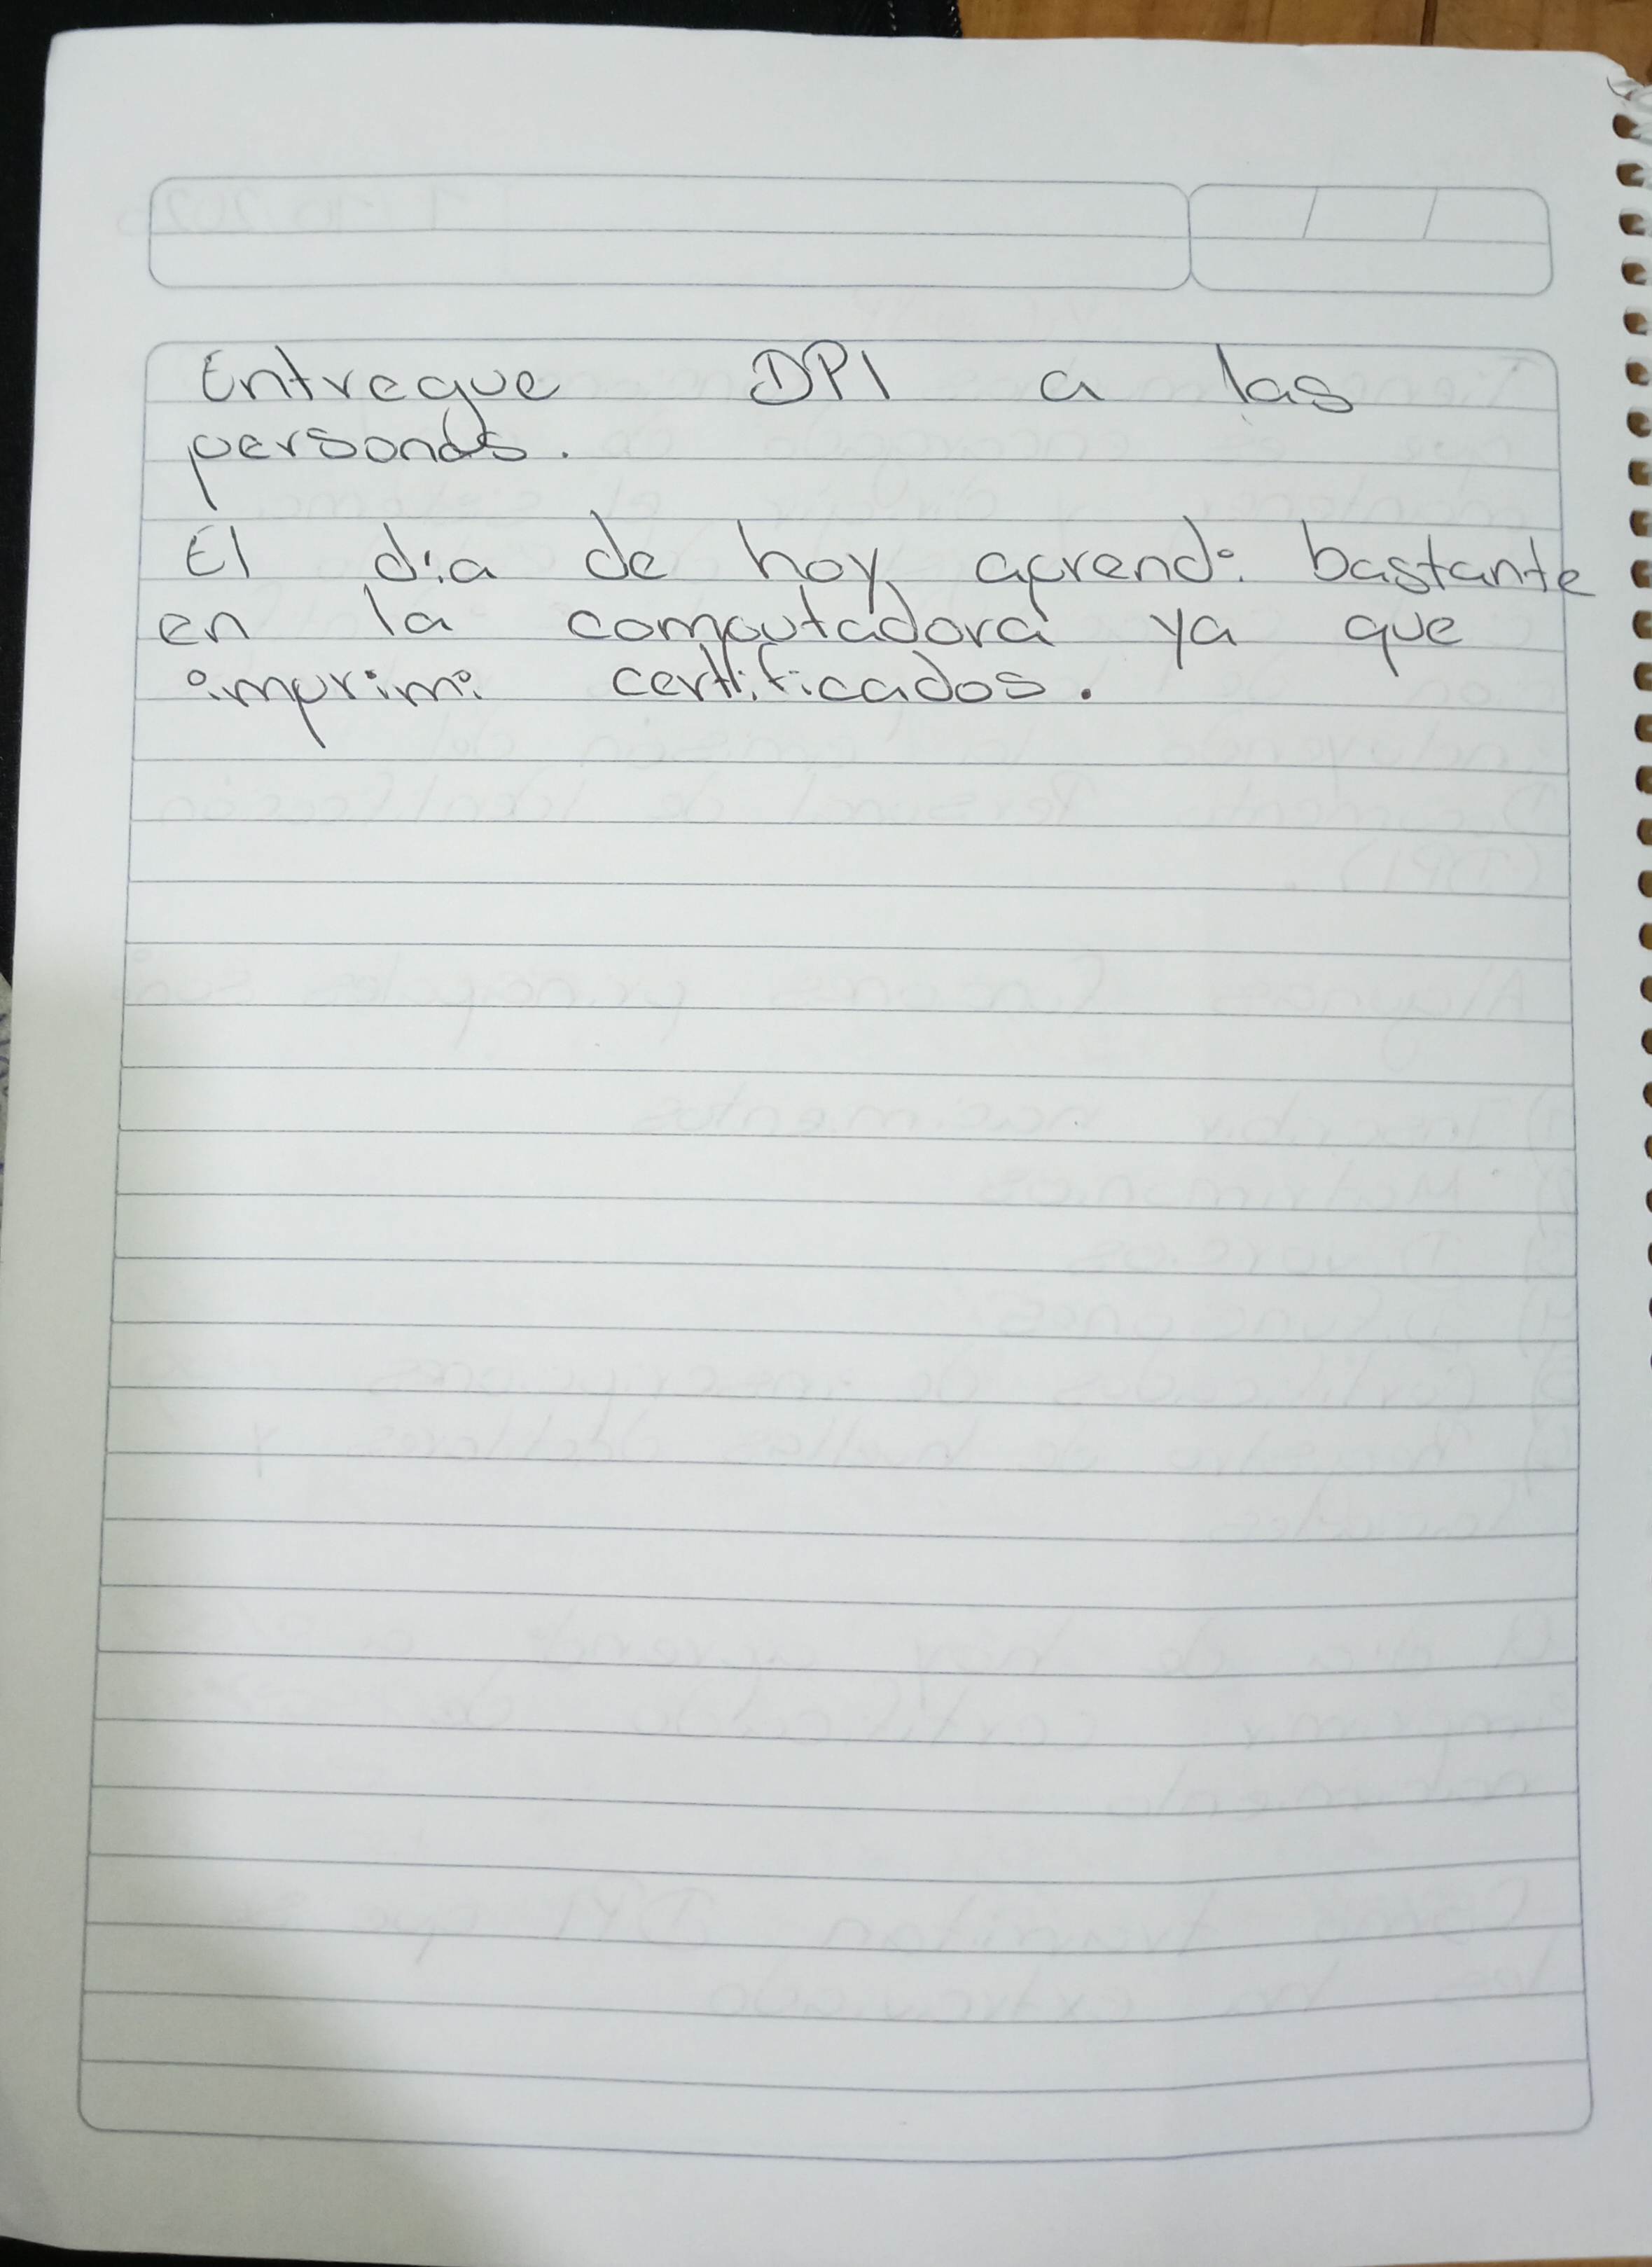 Entregue DPI a las
personas.
El dia de hoy aprendi bastante
en la computadora ya que
imprimi certificados.